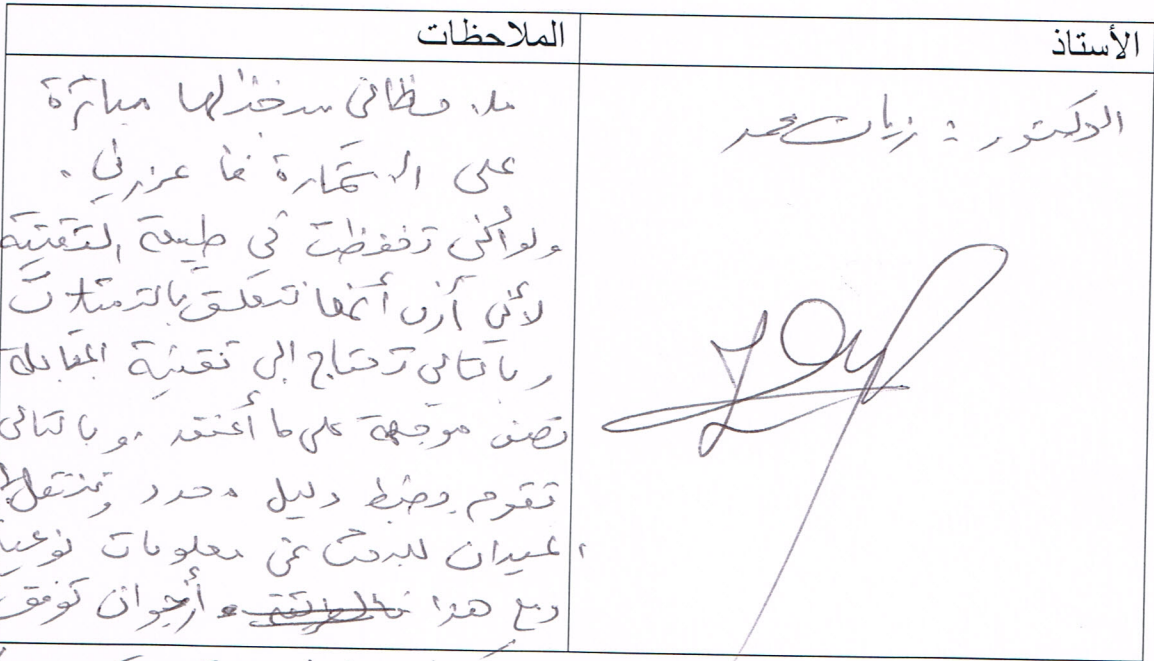 الأستاذ
الملاحظات
الدكتور : زيان محمد
ملاحظاتي ستجدلها مباشرة
على الاستمارة فاعذرني .
ولو أنني تحفظت في طبيعة التقنية
لأني أرى أنها تتعلق بالتمثلات
وبالتالي تحتاج إلى تقنية المقابلة
نصف موجهة على ما أعتقد . وبالتالي
تقوم بضبط دليل محدد وتنتقل
للميدان للبحث عن معلومات نوعية
ومع هذا أرجو أن توفق